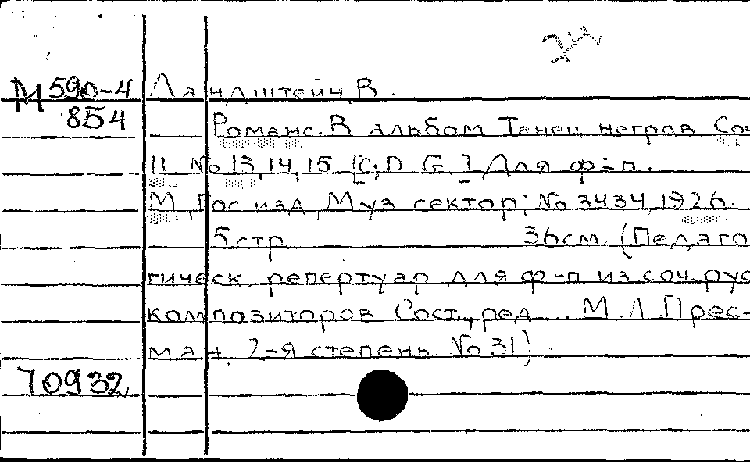 24
М 590-4 Ландштейн, В.
854 Романс. В альбом. Танец негров. Соч
11 No 13, 14, 15. [C, D, G.] Для ф-п.
М., Гос. изд., Муз. сектор; No 3434, 1926.
5 стр. 36 см. (Педаго-
гическ. репертуар для ф-п из соч. рус
композиторов. Сост., ред... М. Л. Прес-
ман. 2-я степень No 31)
70932